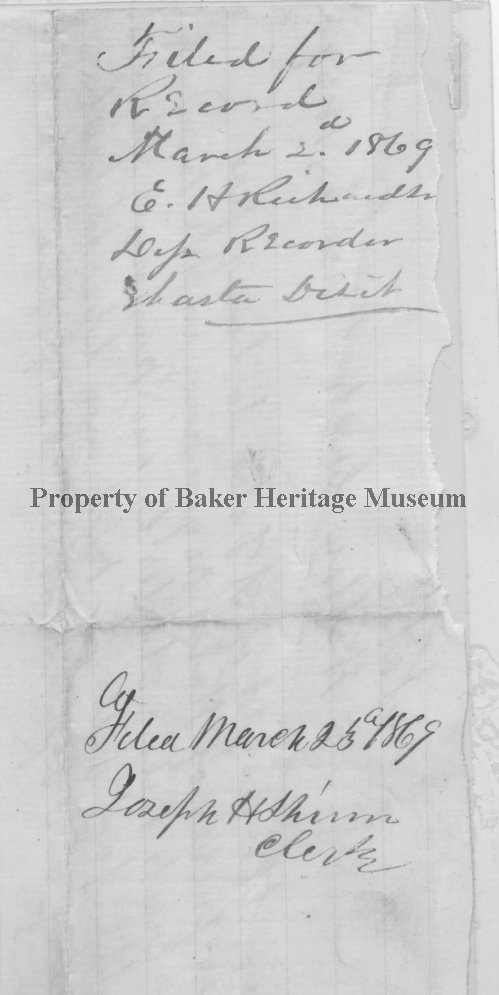 Filed for
Record
March 2.d 1869
E. H Richardson
Dep Recorder
Shasta Dist
Property of Baker Heritage Museum
Filed March 23d 1869
Joseph H Shinn
Clerk